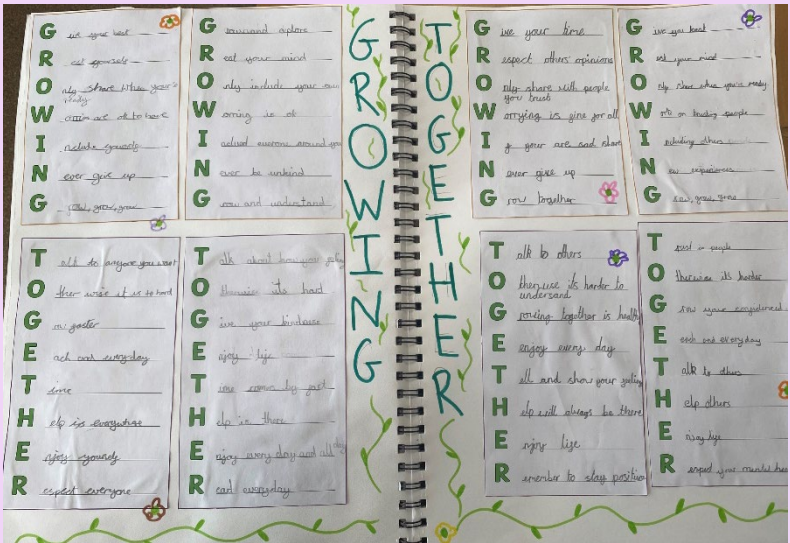 GROWING
TOGETHER
Give your best
Rest yourself
Only share when your
ready
Worries are ok to have
Include yourself
Never give up
Grow, grow, grow
Grow and explore
Rest your mind
Only include your own
Worring is ok
Include everyone around you
Never be unkind
Grow and understand
Give your time
Respect others opinions
Only share with people
you trust
Worrying is fine for all
If your are sad share
Never give up
Grow together
Give you
Rest your mind
Only share when you're ready
on trusting people
Including others
New experiences
Grow, grow, grow
Talk to anyone you want
Otherwise it is to hard
Grow faster
Each and everyday
Time
Help is everywhere
Enjoy yourself
Respect everyone
Talk about how your
Otherwise its hard
Give your kindness
Enjoy life
Time comes by fast
Help is there
Enjoy every day and all day
Read everyday
Talk to others
Otherwise its harder to
undersand
Growing together is healthy
Enjoy every day
Tell and show your
Help will always be there
Enjoy life
Remember to stay positive
Trust in people
Otherwise its harder
Grow your
Each and everyday
Talk to them
Help others
Enjoy life
your mental